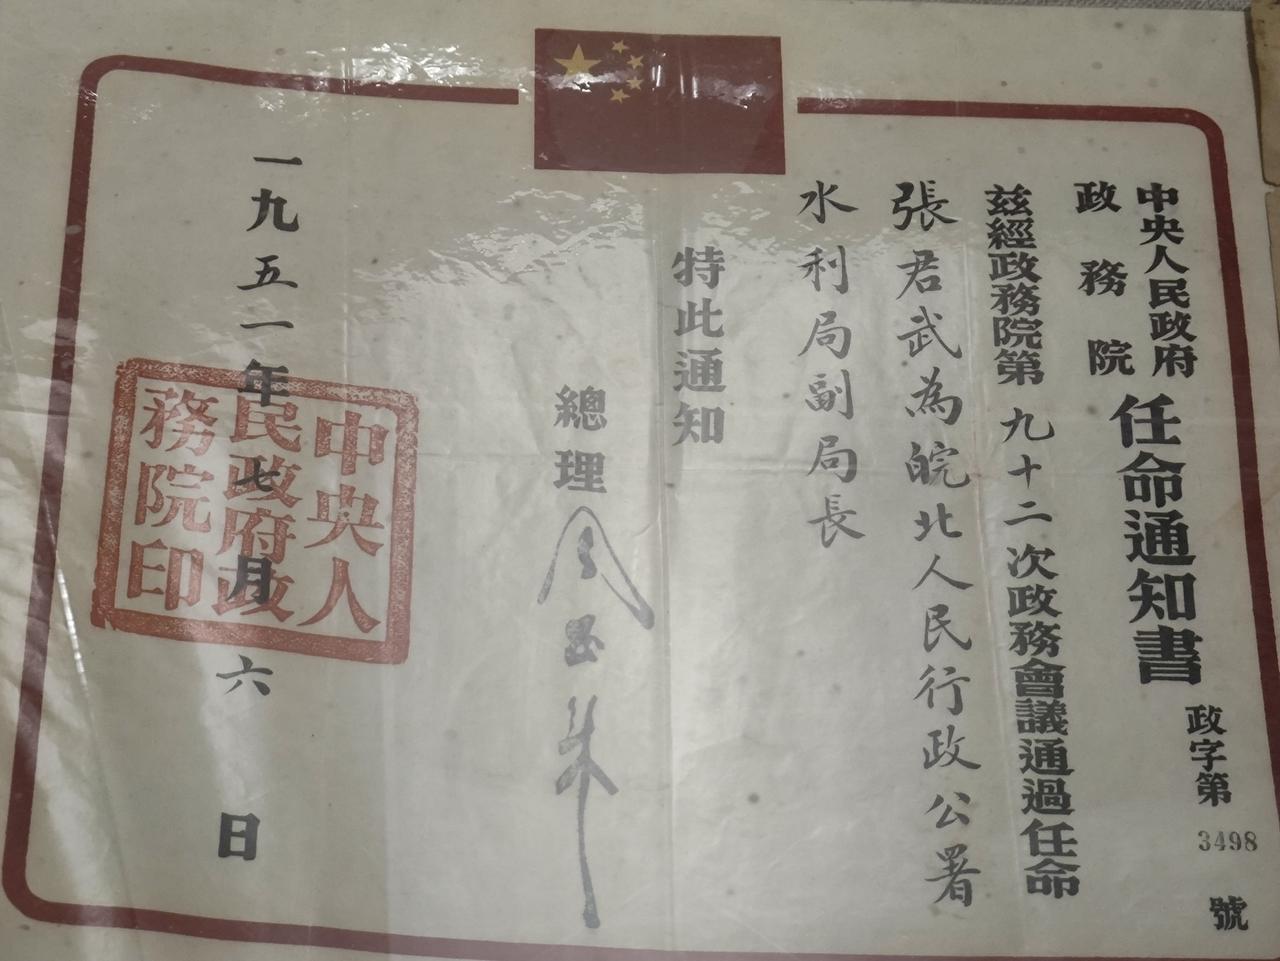 中央人民政府
政務院
任命通知書
政字第3498號
茲經政務院第九十二次政務會議通過任命
張君武為皖北人民行政公署
水利局副局長
特此通知
總理 周恩來
一九五一年七月六日
中央人民政府政務院印